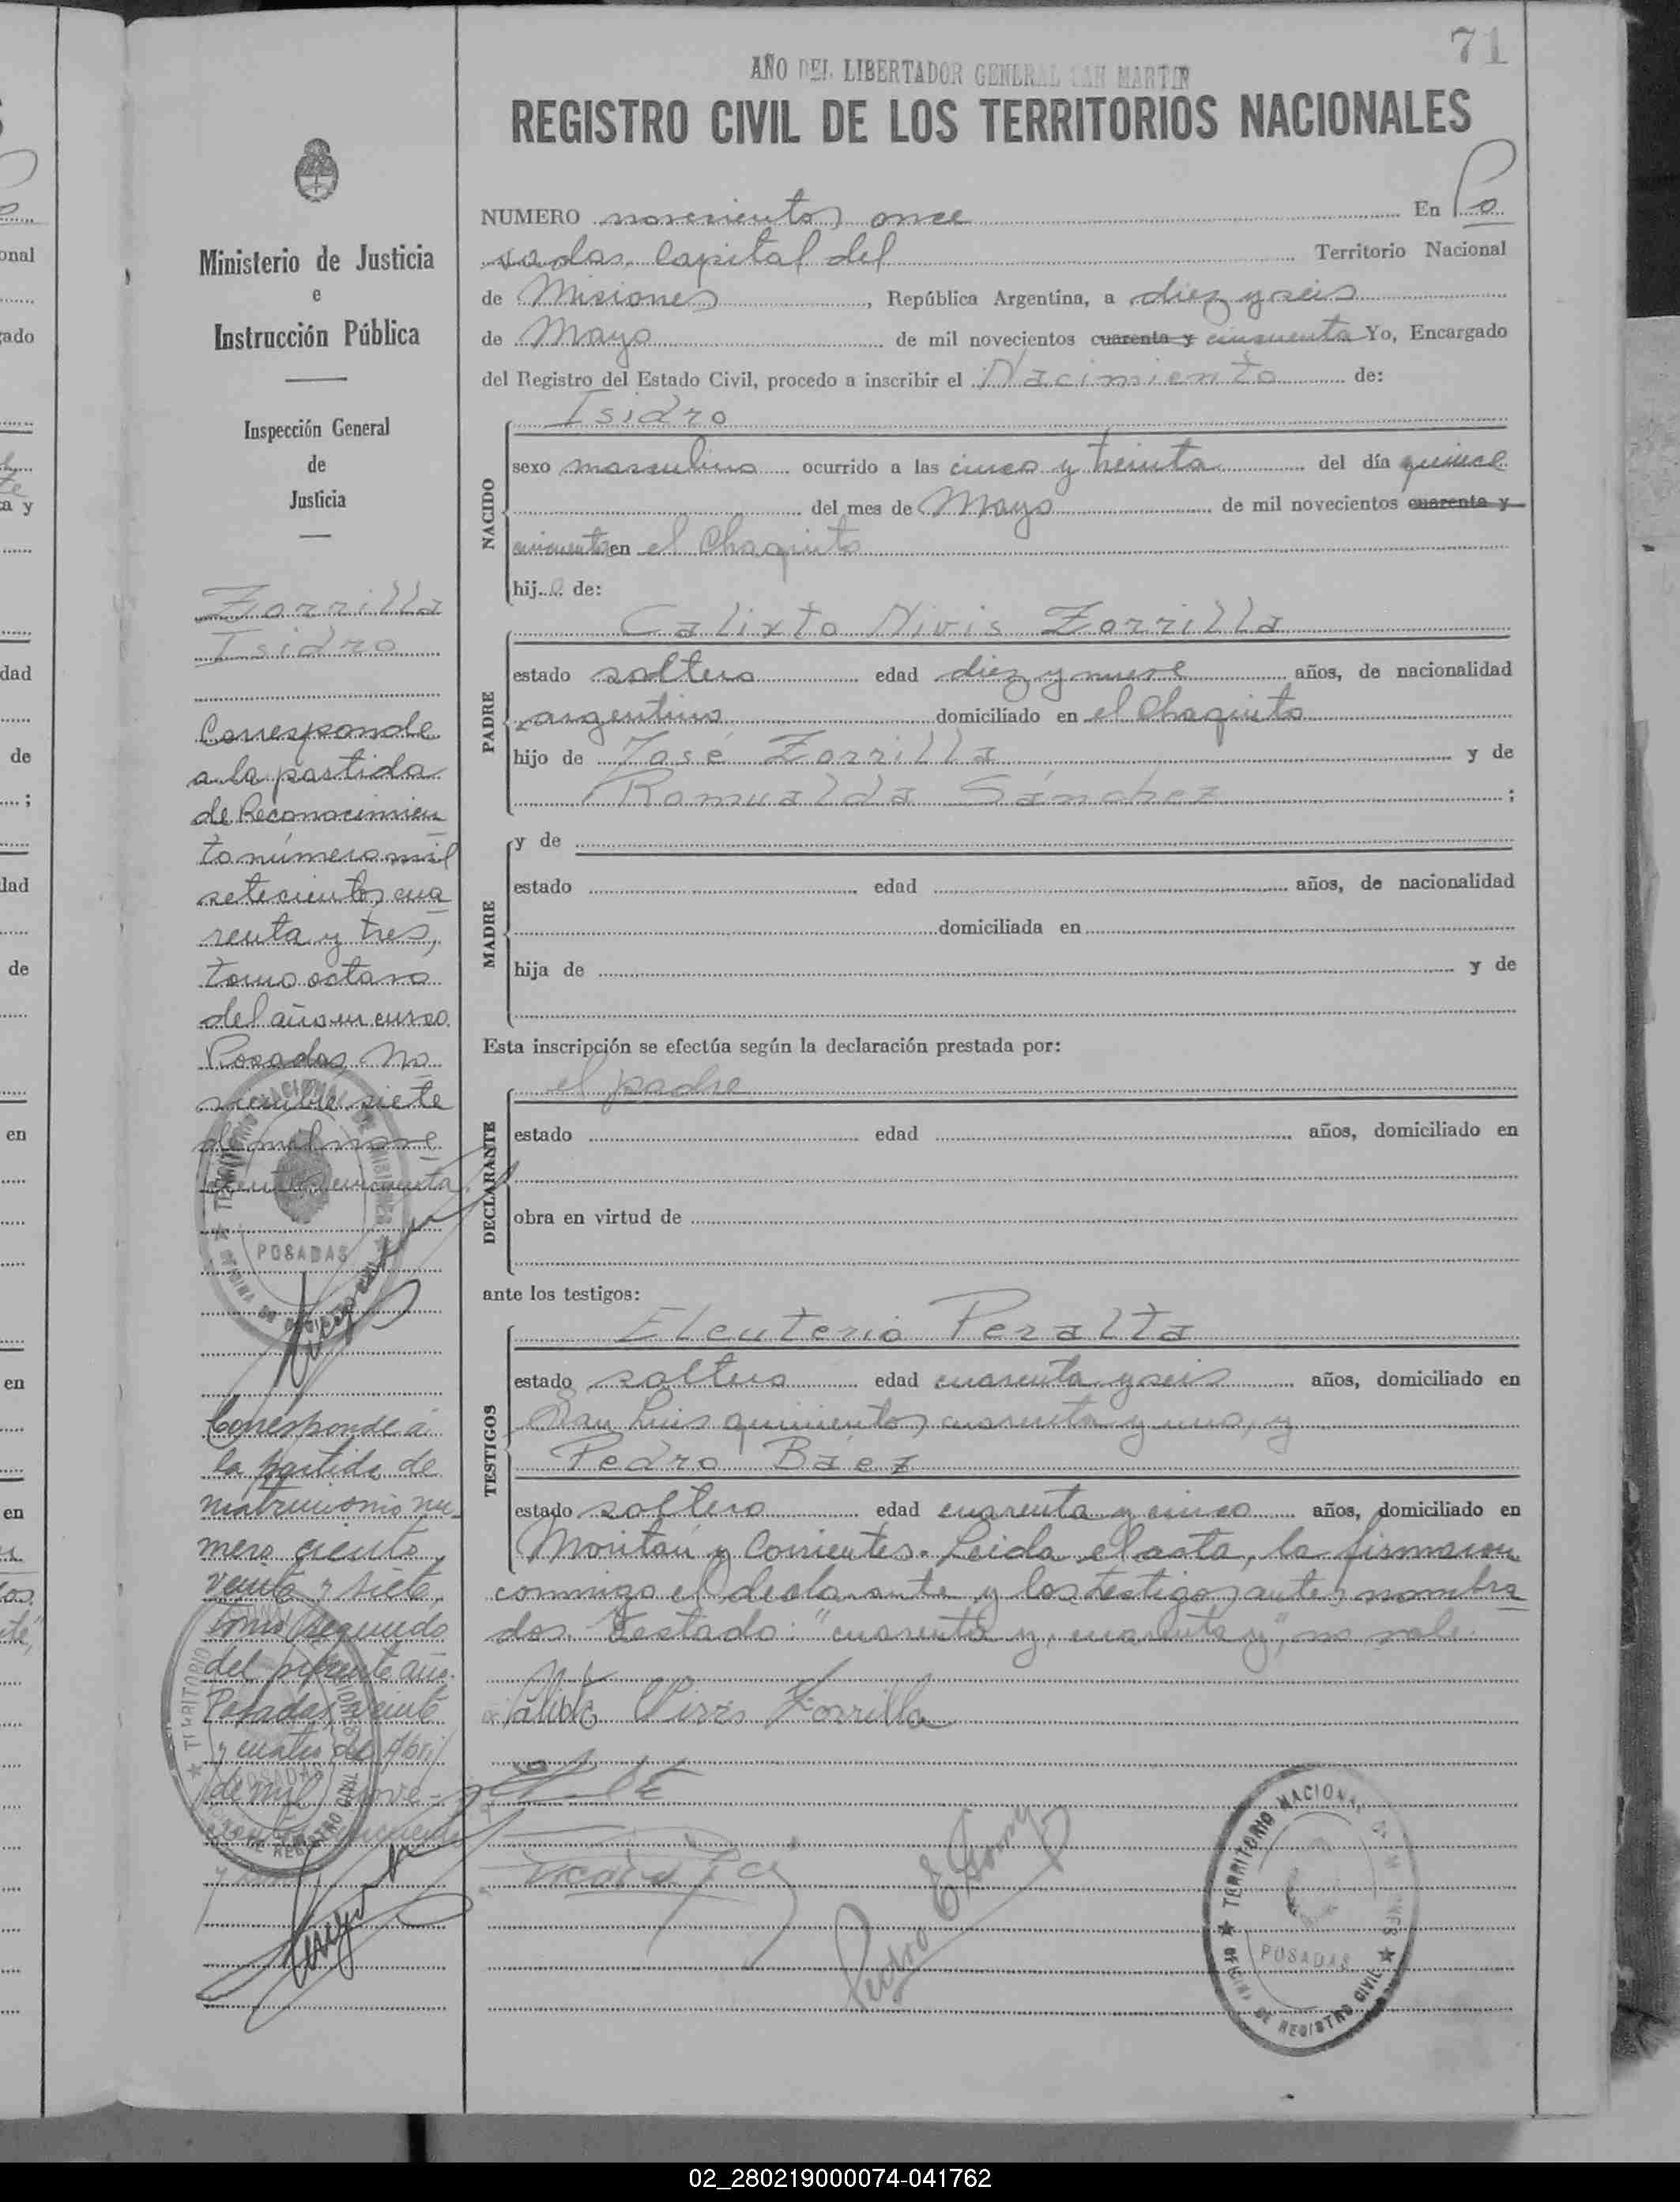 71
AÑO DEL LIBERTADOR GENERAL SAN MARTIN
REGISTRO CIVIL DE LOS TERRITORIOS NACIONALES
NUMERO novecientos once En Po
sadas, Capital del Territorio Nacional
de Misiones, República Argentina, a diez y seis
de Mayo de mil novecientos cuarenta y cincuenta Yo, Encargado
del Registro del Estado Civil, procedo a inscribir el Nacimiento de:
NACIDO
Isidro
sexo masculino ocurrido a las cinco y treinta del día quince
del mes de Mayo de mil novecientos cuarenta y
cincuenta en el Chaquito
hijo de:
PADRE
Calixto Nivis Zorrilla
estado soltero edad diez y nueve años, de nacionalidad
argentino domiciliado en el Chaquito
hijo de José Zorrilla y de
Romualda Sánchez ;
MADRE
y de
estado edad años, de nacionalidad
domiciliada en
hija de y de
Esta inscripción se efectúa según la declaración prestada por:
DECLARANTE
el padre
estado edad años, domiciliado en
obra en virtud de
ante los testigos:
TESTIGOS
Eleuterio Peralta
estado soltero edad cuarenta y seis años, domiciliado en
San Luis quinientos cuarenta y uno, y
Pedro Báez
estado soltero edad cuarenta y cinco años, domiciliado en
Moritán y Corrientes. Leida el acta, la firmaron
conmigo el declarante y los testigos antes nombra
dos. Testado: "cuarenta y, cuarenta y", no vale.
Calixto Nivis Zorrilla
Pedro E. Gomez
TERRITORIO NACIONAL DE MISIONES
POSADAS
OFICINA DE REGISTRO CIVIL
Ministerio de Justicia
e
Instrucción Pública
Inspección General
de
Justicia
Zorrilla
Isidro
Corresponde
a la partida
de Reconocimien
to número mil
setecientos cua
renta y tres,
tomo octavo
del año en curso
Posadas, No
viembre siete
de mil nove
cientos cincuenta
TERRITORIO NACIONAL DE MISIONES
POSADAS
OFICINA DE REGISTRO CIVIL
Corresponde a
la partida de
matrimonio nu-
mero ciento
veinte y siete,
tomo segundo
del presente año.
Posadas, veinte
y cuatro de Abril
de mil nove-
TERRITORIO NACIONAL
POSADAS
OFICINA DE REGISTRO CIVIL
onal
gado
a y
dad
de
;
dad
de
en
en
en
02_280219000074-041762